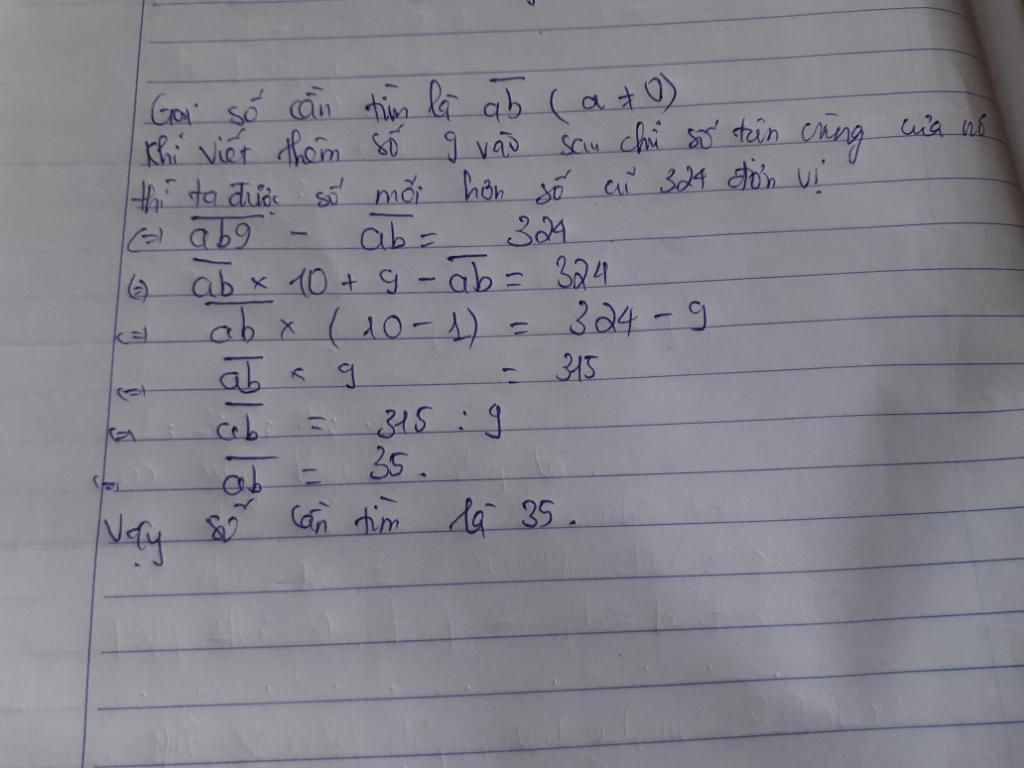 Gọi số cần tìm là a̅b̅ ( a ≠ 0)
Khi viết thêm số 9 vào sau chữ số tận cùng của nó
thì ta được số mới hơn số cũ 324 đơn vị
(=) a̅b̅9̅ - a̅b̅ = 324
(=) a̅b̅ × 10 + 9 - a̅b̅ = 324
(=) a̅b̅ × ( 10 - 1) = 324 - 9
(=) a̅b̅ × 9 = 315
(=) a̅b̅ = 315 : 9
(=) a̅b̅ = 35.
Vậy số cần tìm là 35.